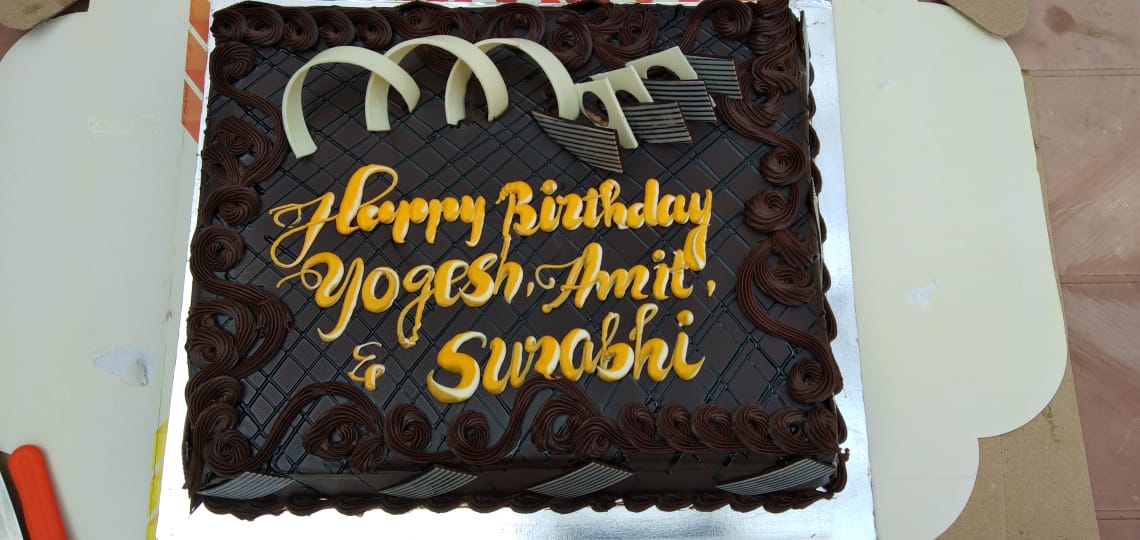 Happy Birthday
Yogesh, Amit,
& Surabhi